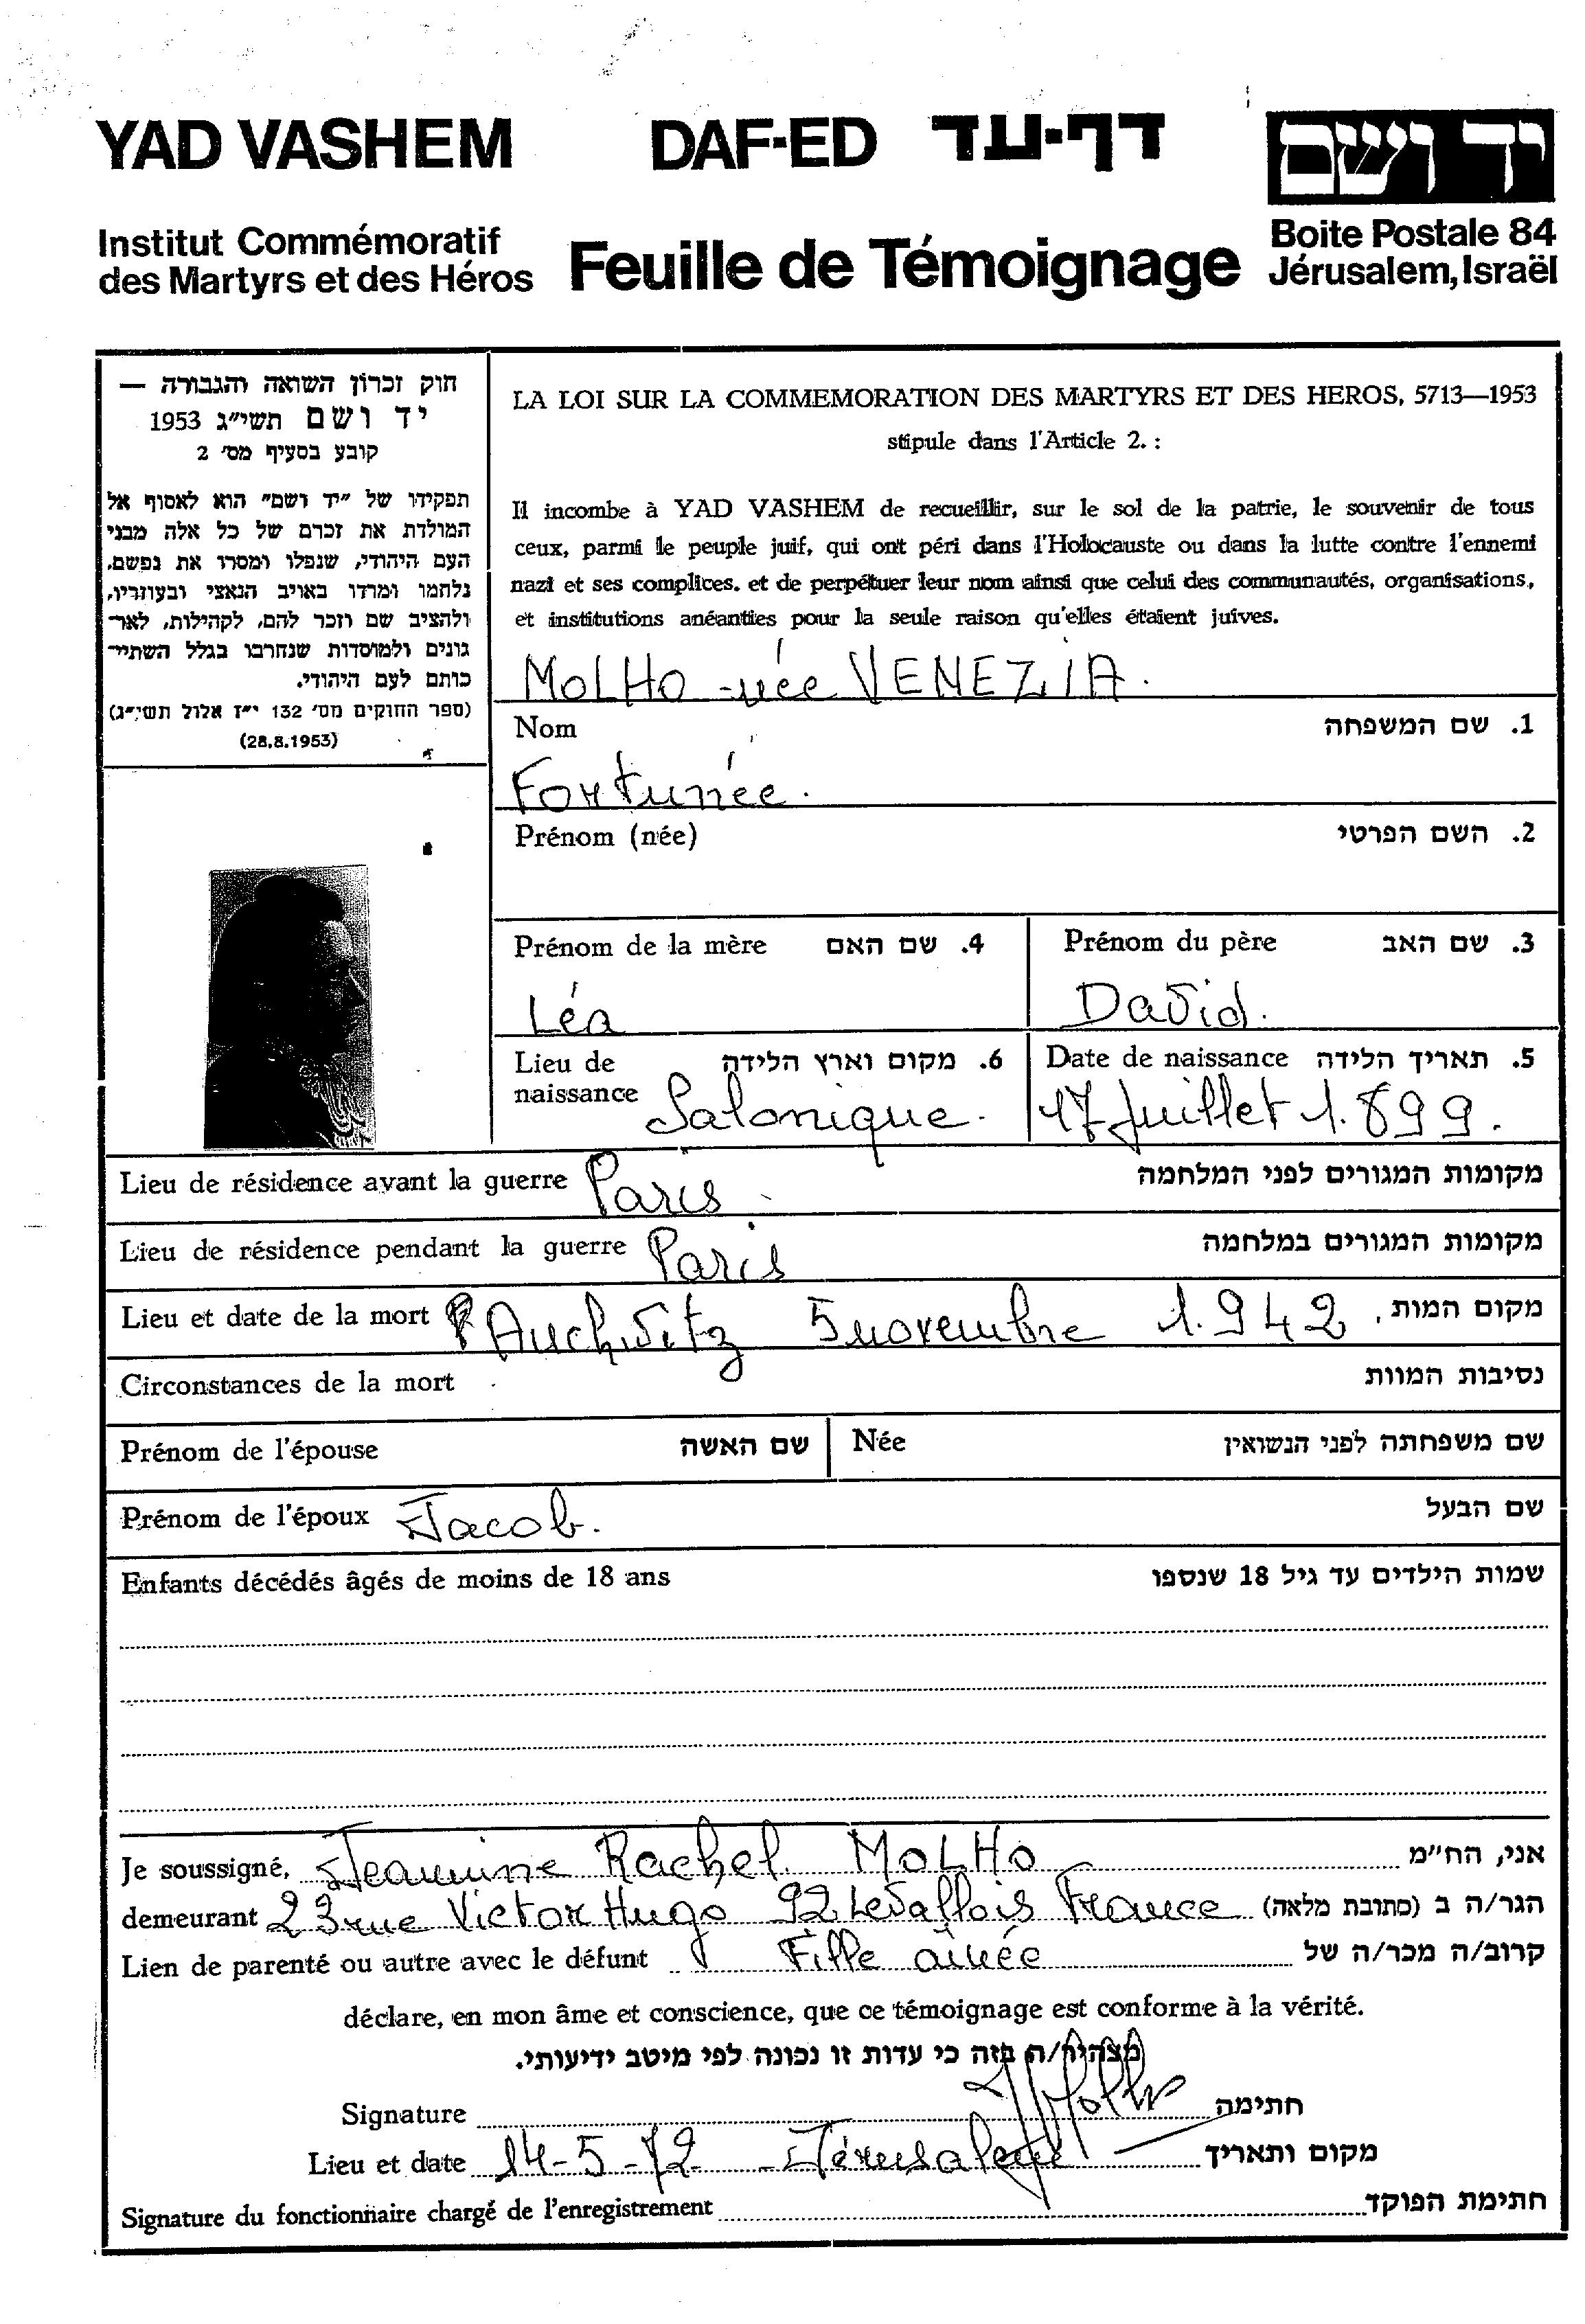 YAD VASHEM DAF-ED דף-עד יד ושם
Institut Commémoratif
des Martyrs et des Héros
Feuille de Témoignage
Boite Postale 84
Jérusalem, Israël
חוק זכרון השואה והגבורה —
יד ושם תשי"ג 1953
קובע בסעיף מס' 2
תפקידו של "יד ושם" הוא לאסוף אל
המולדת את זכרם של כל אלה מבני
העם היהודי, שנפלו ומסרו את נפשם,
נלחמו ומרדו באויב הנאצי ובעוזריו,
ולהציב שם וזכר להם, לקהילות, לאר-
גונים ולמוסדות שנחרבו בגלל השתיי-
כותם לעם היהודי.
(ספר החוקים מס' 132 י"ז אלול תשי"ג)
(28.8.1953)
LA LOI SUR LA COMMEMORATION DES MARTYRS ET DES HEROS, 5713—1953
stipule dans l'Article 2. :
Il incombe à YAD VASHEM de recueillir, sur le sol de la patrie, le souvenir de tous
ceux, parmi le peuple juif, qui ont péri dans l'Holocauste ou dans la lutte contre l'ennemi
nazi et ses complices. et de perpétuer leur nom ainsi que celui des communautés, organisations,
et institutions anéanties pour la seule raison qu'elles étaient juives.
MOLHO née VENEZIA.
Nom 1. שם המשפחה
Fortunée.
Prénom (née) 2. השם הפרטי
Prénom de la mère 4. שם האם Prénom du père 3. שם האב
Léa David.
Lieu de naissance 6. מקום וארץ הלידה Date de naissance 5. תאריך הלידה
Salonique. 17 Juillet 1.899.
Lieu de résidence avant la guerre Paris מקומות המגורים לפני המלחמה
Lieu de résidence pendant la guerre Paris מקומות המגורים במלחמה
Lieu et date de la mort Auchwitz 5 novembre 1.942 מקום המות,
Circonstances de la mort נסיבות המוות
Prénom de l'épouse שם האשה Née שם משפחתה לפני הנשואין
Prénom de l'époux Jacob. שם הבעל
Enfants décédés âgés de moins de 18 ans שמות הילדים עד גיל 18 שנספו
Je soussigné, Jeannine Rachel MOLHO אני, הח"מ
demeurant 23 rue Victor Hugo 92 Levallois France הגר/ה ב (כתובת מלאה)
Lien de parenté ou autre avec le défunt Fille aînée קרוב/ה מכר/ה של
déclare, en mon âme et conscience, que ce témoignage est conforme à la vérité.
מצהיר/ה בזה כי עדות זו נכונה לפי מיטב ידיעותי.
Signature JMolho חתימה
Lieu et date 14-5-72 Jérusalem מקום ותאריך
Signature du fonctionnaire chargé de l'enregistrement חתימת הפוקד